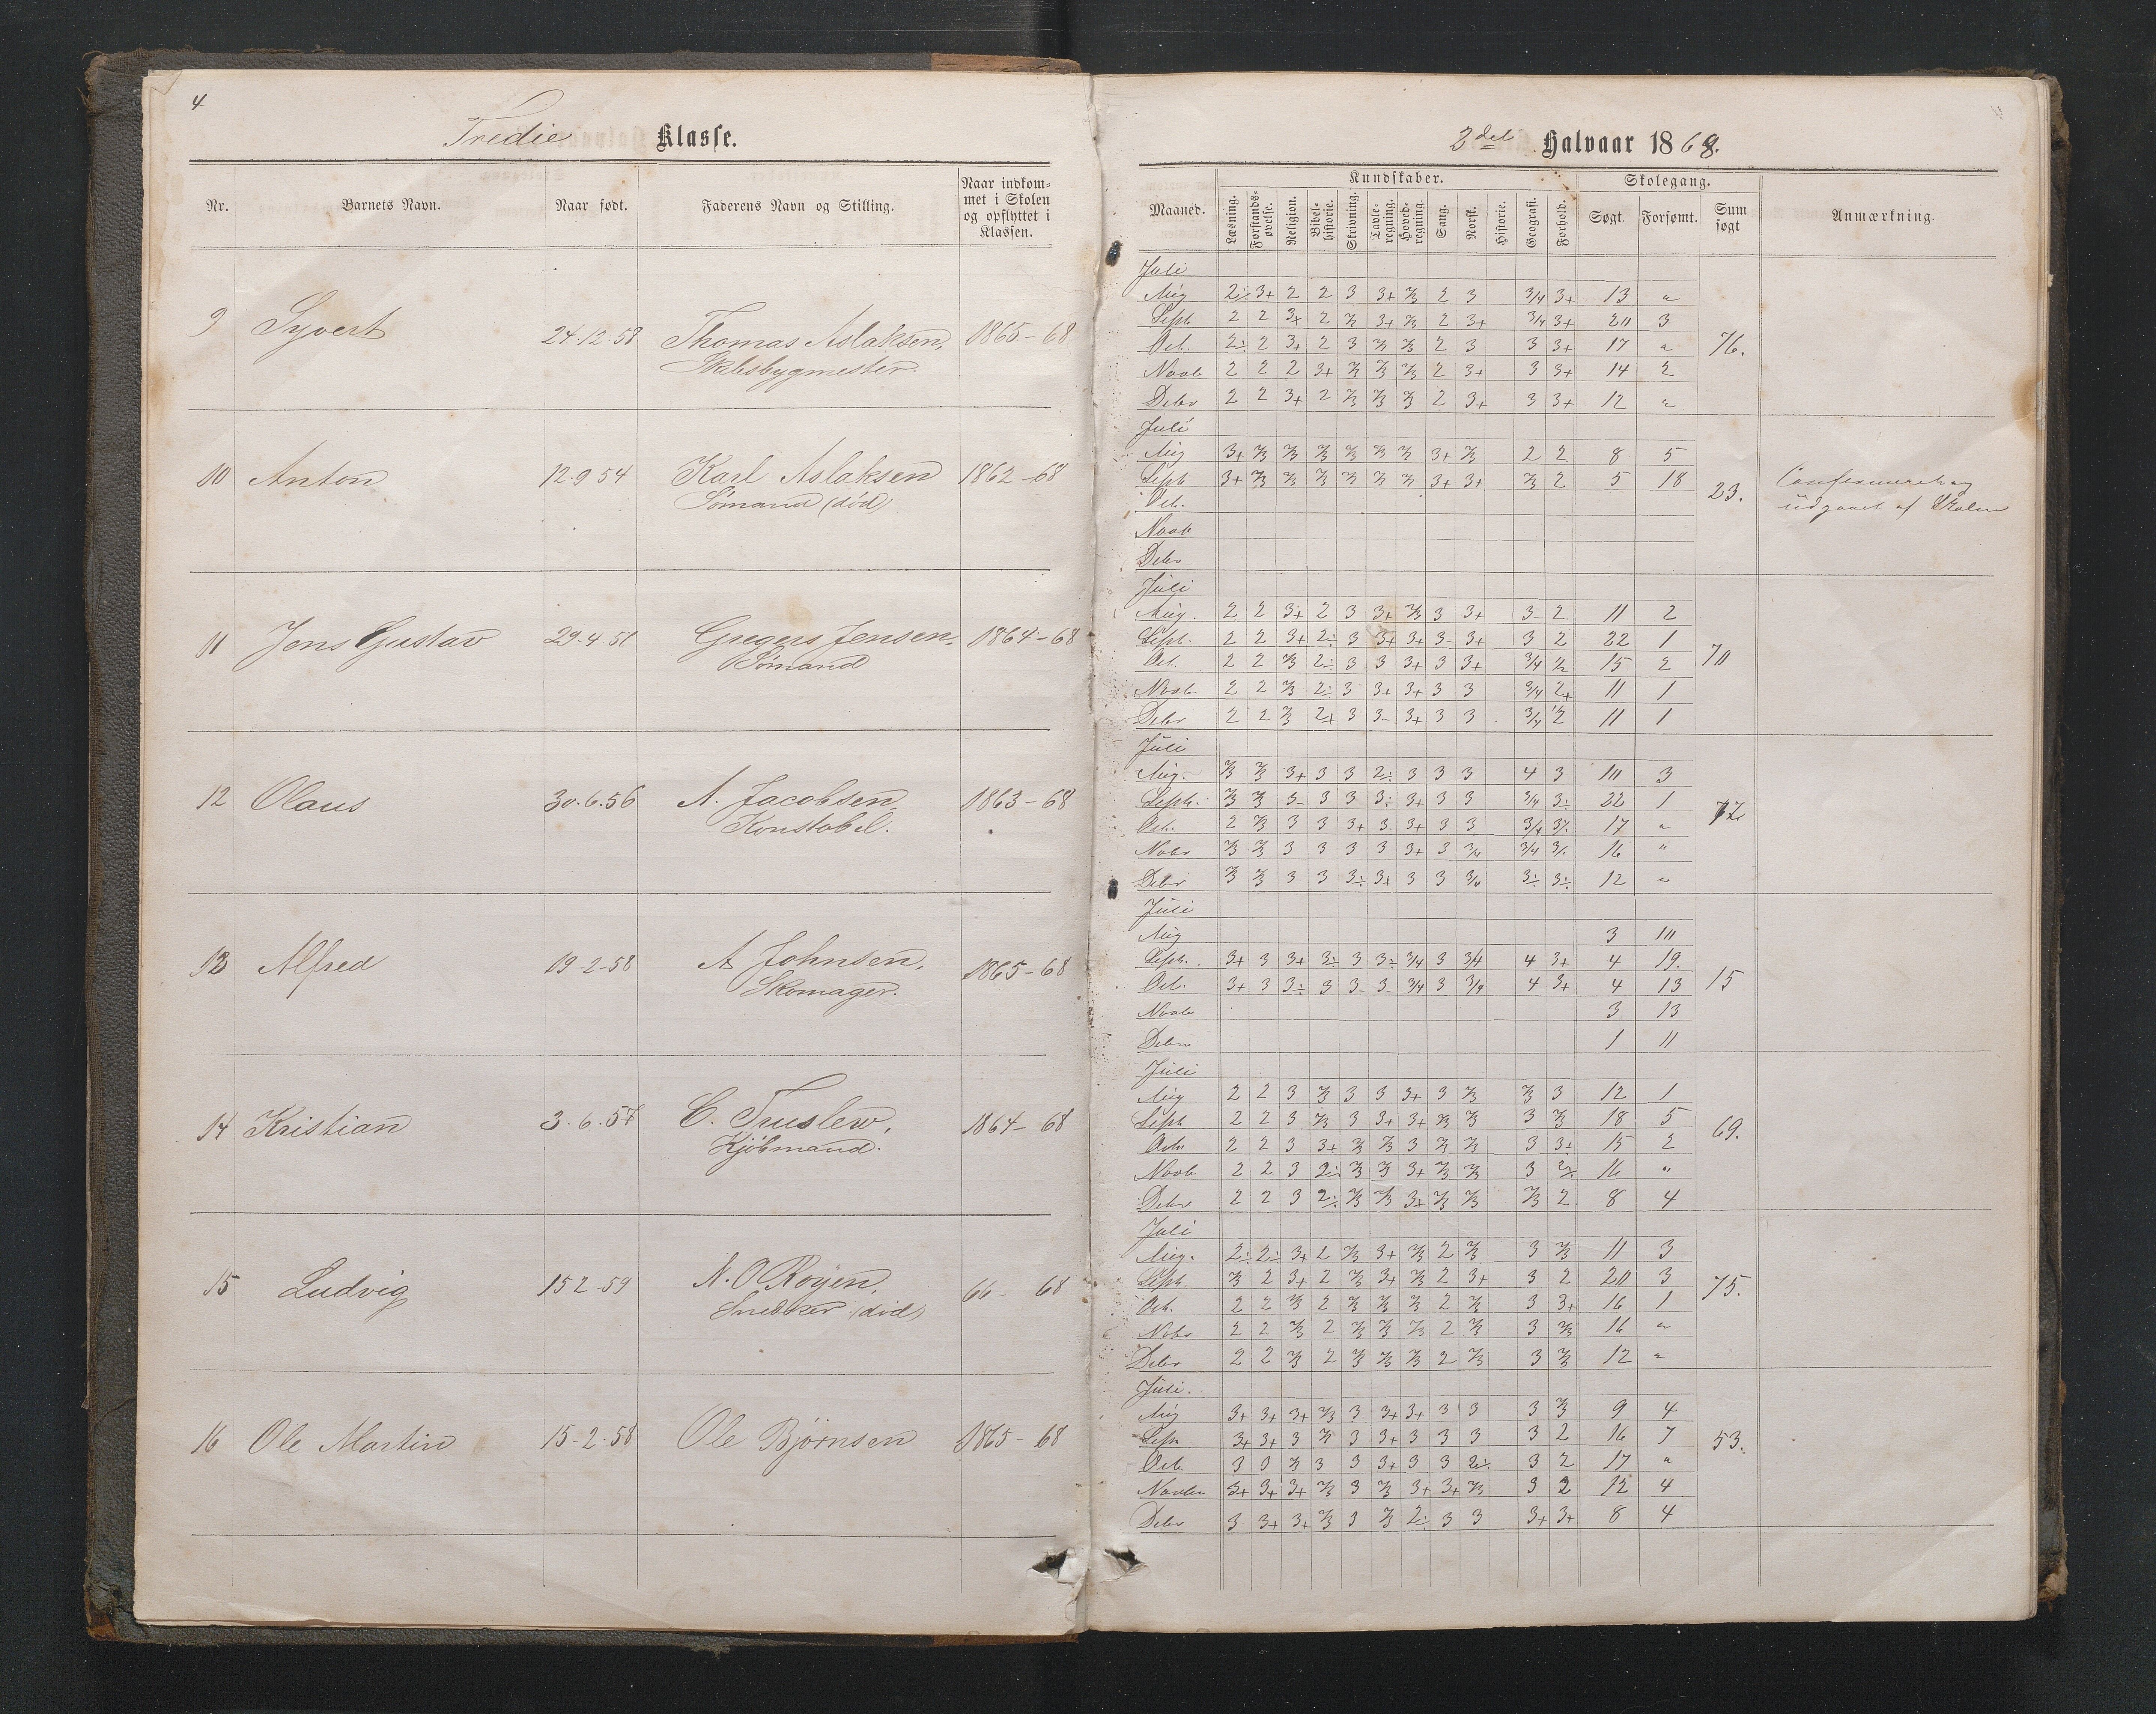 4
Tredie Klasse.
Nr. Barnets Navn. Naar født. Faderens Navn og Stilling. Naar indkom-
met i Skolen
og opflyttet i
Klassen.
9 Syvert 24.12.58 Thomas Aslaksen, 1865-68
Skibsbygmester.
10 Anton 12.9 54 Karl Aslaksen 1862-68
Sømand (død)
11 Jens Gustav 29.4 Gregers Jensen. 1864-68
Sømand
12 Olaus 30.6.56 A. Jacobsen. 1863-68
Konstabel.
13 Alfred 19-2-58 A Johnsen. 1865-68
Skomager.
14 Kristian 3.6.57 C. Truslew, 1864-68
Kjøbmand.
15 Ludvig 15 2-59 N. O Røyen, 66- 68
Snedker (død)
16 Ole Martin 15-2.58 Ole Bjørnsen 1865-68
2det Halvaar 1868.
Maaned. Kundskaber. Skolegang. Anmærkning.
Læsning. Forstands-
øvelse. Religion. Bibel-
historie. Skrivning. Tavle-
regning. Hoved-
regning. Sang. Norsk. Historie. Geografi. Forhold. Søgt. Forsømt. Sum
søgt
Juli
Aug 2÷ 3+ 2 2 3 3+ 2/3 2 3 3/4 3+ 13 "
Sept 2 2 3+ 2 2/3 3+ 2/3 2 3+ 3/4 3+ 20 3
Oct. 2÷ 2 3+ 2 3 2/3 2/3 2 3 3 3+ 17 " 76.
Novb 2 2 2 3+ 2/3 2/3 2/3 2 3+ 3 3+ 14 2
Debr 2 2 3+ 2 2/3 2/3 2/3 2 3+ 3 3+ 12 "
Juli
Aug 3+ 2/3 2/3 2/3 2/3 2/3 2/3 3+ 2/3 2 2 8 5
Sept 3+ 2/3 2/3 2/3 2/3 2/3 2/3 3+ 3+ 2/3 2 5 18 23. Confirmeret og
Oct. udgaaet af Skolen
Novb
Debr
Juli
Aug. 2 2 3+ 2 3 3+ 2/3 3 3+ 3- 2 11 2
Sept. 2 2 3+ 2÷ 3 3+ 3+ 3- 3+ 3 2 22 1
Oct. 2 2 2/3 2÷ 3 3 3+ 3 3+ 3/4 1/2 15 2 70
Novb. 2 2 2/3 2÷ 3 3+ 3+ 3 3 3/4 2+ 11 1
Debr 2 2 2/3 2+ 3 3- 3+ 3 3 3/4 1/2 11 1
Juli
Aug. 2/3 2/3 3+ 3 3 2÷ 3 3 3 4 3 10 3
Sept. 2/3 2/3 3- 3 3 3÷ 3+ 3 3 3/4 3÷ 22 1 77
Oct. 2 2/3 3 3 3+ 3 3+ 3 3 3/4 3÷ 17 "
Nobr 2/3 2/3 3 3 3 3 3+ 3 3/4 3/4 3÷ 16 "
Debr 2/3 2/3 3 3 3÷ 3+ 3 3 3/4 3÷ 3÷ 12 "
Juli
Aug 3 10
Sept. 3+ 3 3+ 3÷ 3 3÷ 3/4 3 3/4 4 3+ 4 19.
Oct. 3+ 3 3÷ 3 3- 3- 3/4 3 3/4 4 3+ 4 13 15
Novbr 3 13
Debr 1 11
Juli
Aug 2 2 3 2/3 3 3 3+ 3 2/3 2/3 3 12 1
Sept 2 2 3 2/3 3 3+ 3+ 2/3 2/3 3 2/3 18 5 69.
Octr 2 2 3 3+ 2/3 2/3 3 2/3 2/3 3 3+ 15 2
Novb 2 2 3 2÷ 2/3 2/3 3+ 2/3 2/3 3 2÷ 16 "
Debr 2 2 3 2÷ 2/3 2/3 3+ 2/3 2/3 2/3 2 8 4
Juli
Aug. 2÷ 2÷ 3+ 2 2/3 3+ 2/3 2 2/3 3 2/3 11 3
Sept. 2/3 2 3+ 2 2/3 3+ 2/3 2 3+ 3 2 20 3 75.
Oct. 2 2 2/3 2 2/3 2/3 2/3 2 2/3 3 3+ 16 1
Nobr 2 2 2/3 2 2/3 2/3 2/3 2 2/3 3 2/3 16 "
Debr 2 2 2/3 2 2/3 2/3 2/3 2 2/3 3 2/3 12 "
Juli.
Aug 3+ 3+ 3+ 2/3 3 3+ 3+ 3 3 3 2/3 9 4
Sept 3+ 3+ 3 2/3 3 3+ 3 3 3 3 2 16 7 53.
Oct. 3 3 2/3 3 3 3+ 3 3 2÷ 3 2 17 "
Novbr 3+ 3+ 3+ 2/3 3 2/3 3+ 3+ 2/3 3 2 12 4
Debr 3 3+ 3+ 2/3 3 2/3 2÷ 3 3 3+ 3+ 8 4